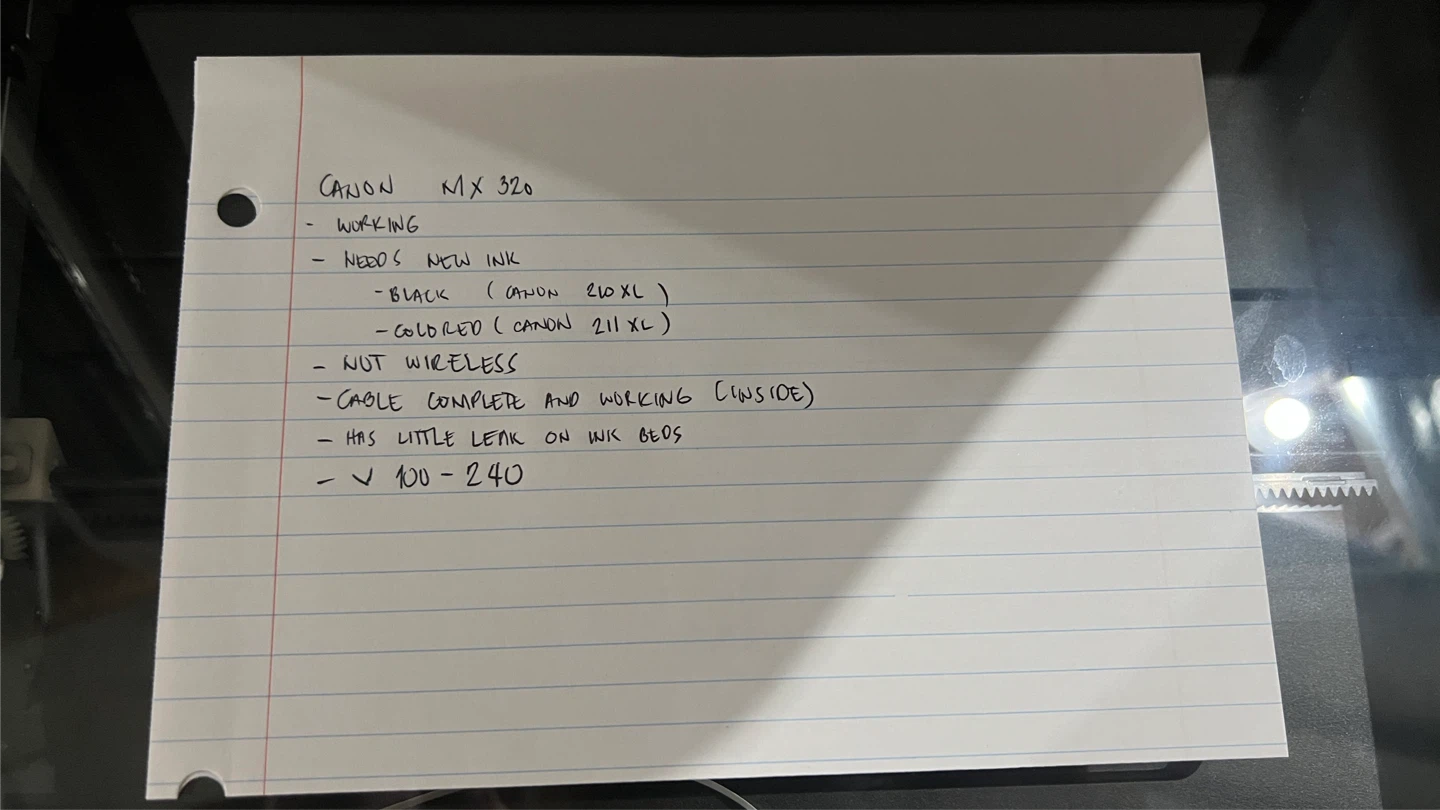 CANON MX 320
- WORKING
- NEEDS NEW INK
- BLACK (CANON 210 XL)
- COLORED (CANON 211 XL)
- NOT WIRELESS
- CABLE COMPLETE AND WORKING (INSIDE)
- HAS LITTLE LEAK ON INK BEDS
- V 100 - 240